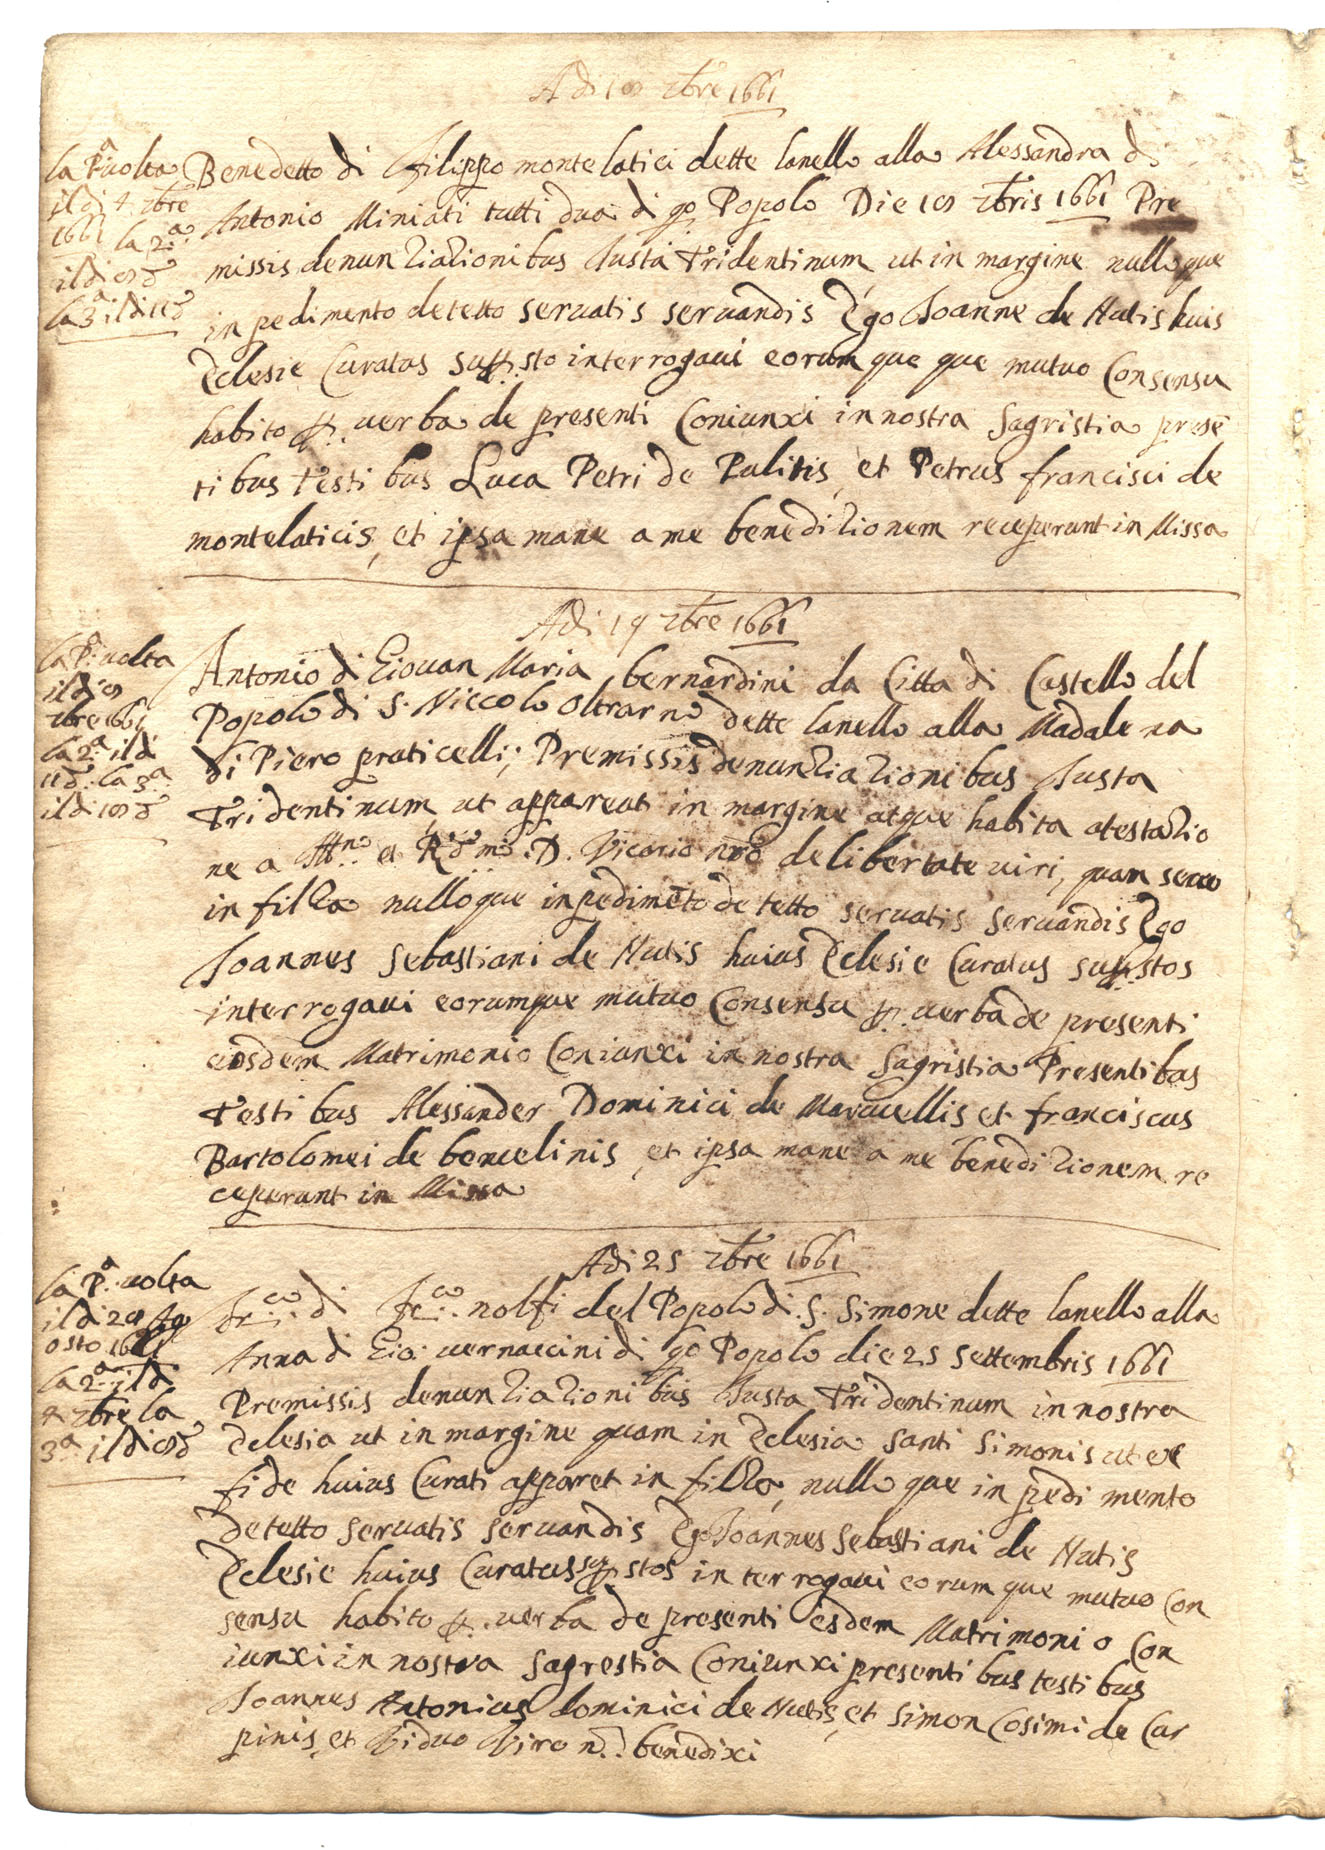 Adi 18 7bre 1661
la Pa uolta
il di 4. 7bre
1661 la 2.a
il di 8 do
la 3a il di 11 do
Benedetto di filippo montelatici dette lanello alla Alessandra di
Antonio Miniati tutti dua di qo Popolo Die 18 7bris 1661 Pre
missis denuntiationibus Iusta Tridentinum, ut in margine nulloque
inpedimento detetto seruatis seruandis Ego Ioanne de Nutis huis
Eclesie Curatus supsto interrogaui eorumque que mutuo Consensu
habito p. uerba de presenti Coniunxi in nostra sagristia presē
tibus testibus Luca Petri de Pulitis, et Petrus francisci de
montelaticis, et ipsa mane a me beneditionem receperunt in Missa
Adi 19 7bre 1661
la Pa. uolta
il di 8
7bre 1661
la 2.a il di
11 do. la 3a
il di 18 do
Antonio di Giouan Maria bernardini da Citta di Castello del
Popolo di S. Niccolo Oltrarno dette lanello alla Madalena
di Piero praticelli; Premissis denuntiationibus Iusta
Tridentinum, ut appareat in margine atque habita atestatio
ne a et Rdmo. D. Vicario nro de libertate uiri, quam seruo
in filza nulloque inpedimēto detetto seruatis seruandis Ego
Ioannes Sebastiani de Nutis huius Eclesie Curatus supstos
interrogaui eorumque mutuo Consensu p. uerba de presenti
eosdem Matrimonio Coniunxi in nostra sagristia Presentibus
Testibus Alessander Dominici de Marucellis et franciscus
Bartolomei de boncelinis, et ipsa mane a me beneditionem re
ceperunt in Missa
Adi 25 7bre 1661
la Pa. uolta
il di 28 Ag
osto 1661
la 2.a il di
4 7bre la
3a il di 8 do
frco. di frco. nolfi del Popolo di S. Simone dette lanello alla
Anna di Gio: uernaccini di qo Popolo die 25 settembris 1661
Premissis denuntiationibus Iusta Tridentinum in nostra
Eclesia ut in margine quam in Eclesia santi simonis ut ex
fide huius Curati apparet in filza, nulloque in pedimento
detetto seruatis seruandis Ego Ioannes Sebastiani de Nutis
Eclesie huius Curatus supstos interrogaui eorumque mutuo Con
sensu habito p. uerba de presenti esdem Matrimonio Con
iunxi in nostra sagrestia Coniunxi presentibus testibus
Ioannes Antonius dominici de Nutis, et Simon Cosimi de Car
pinis, et Viduo Viro n. benedixi